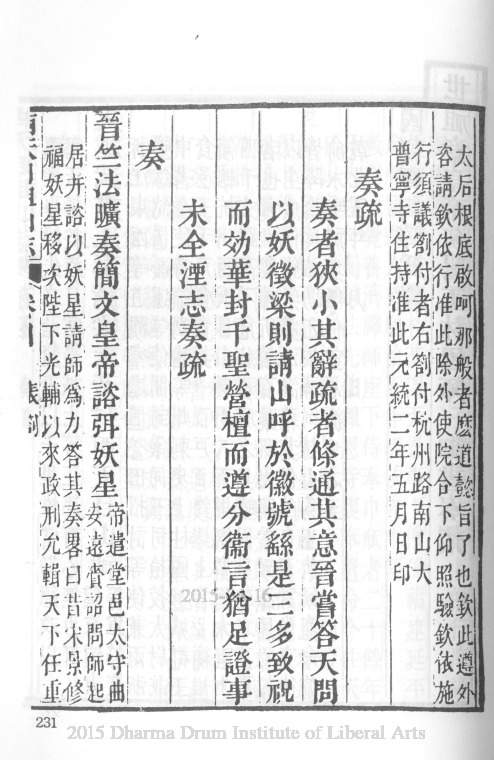 太后根底啟呵那般者麽道懿旨了也欽此遵外
咨請欽依行准此除外使院合下仰照驗欽依施
行須議劄付者右劄付杭州路南山大
普寧寺住持准此元統二年五月日印
奏疏
奏者狹小其辭疏者條通其意晉嘗答天問
以妖徵梁則請山呼於徽號繇是三多致祝
而効華封千聖營壇而遵分衞言猶足證事
未全湮志奏疏
奏
晉竺法曠奏簡文皇帝諮弭妖星
帝遣堂邑太守曲
安遠賫詔問師起
居并諮以妖星請師爲力答其奏畧曰昔宋景修
福妖星移次陛下光輔以來政刑允輯天下任重
231
2015 Dharma Drum Institute of Liberal Arts